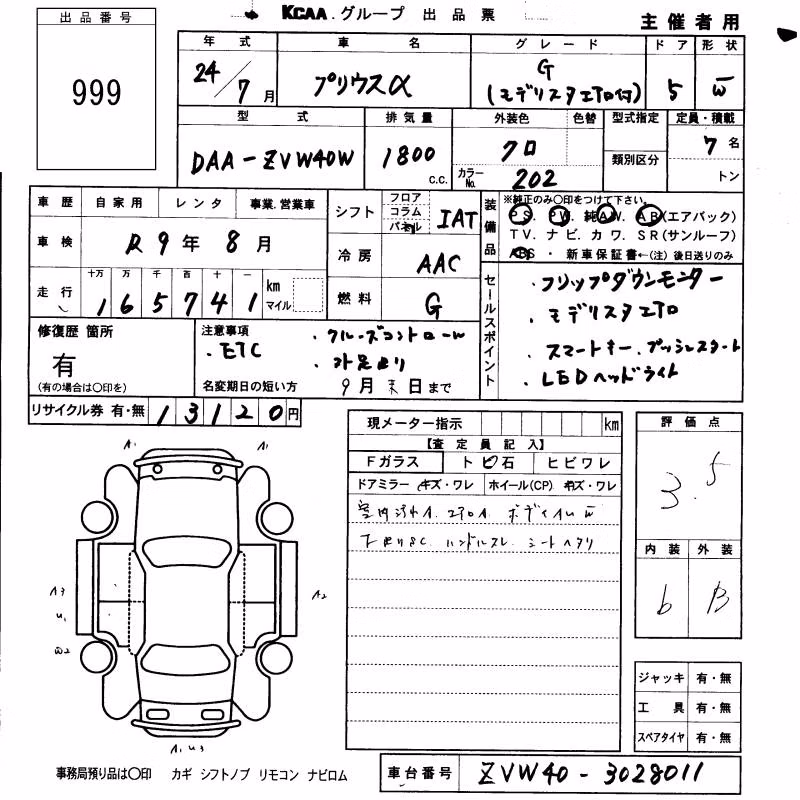 KCAA.グループ 出品票
主催者用
出品番号
999
年式 車名 グレード ドア 形状
24/7月 プリウスα G 5 W
(モデリスタエアロ付)
型式 排気量 外装色 色替 型式指定 定員・積載
DAA-ZVW40W 1800 c.c. クロ 類別区分 7名
カラーNo. 202 トン
車歴 自家用 レンタ 事業.営業車
シフト フロア コラム パネル IAT
装備品 ※純正のみ〇印をつけて下さい。
PS. PW. 純AW. AB(エアバック)
TV. ナビ. カワ. SR(サンルーフ)
ABS ・ 新車保証書←(注) 後日送りのみ
車検 R9年8月
冷房 AAC
走行 十万 万 千 百 十 一
165741 km マイル
燃料 G
セールスポイント
・フリップダウンモニター
・モデリスタエアロ
・スマートキー.プッシュスタート
・LEDヘッドライト
修復歴 箇所
有
(有の場合は〇印を)
注意事項
・ETC
・クルーズコントロール
名変期日の短い方 9月末日まで
リサイクル券 有・無 13120円
現メーター指示 km
【査定員記入】
Fガラス トビ石 ヒビワレ
ドアミラー キズ・ワレ ホイール(CP) キズ・ワレ
室内汚れA. エアロA. ボディ
ハンドルスレ. シートヘタリ
評価点
3.5
内装 外装
b B
A1 A1
A3
U1
W2
A2
A1.U3
ジャッキ 有・無
工具 有・無
スペアタイヤ 有・無
事務局預り品は〇印 カギ シフトノブ リモコン ナビロム
車台番号 ZVW40-3028011